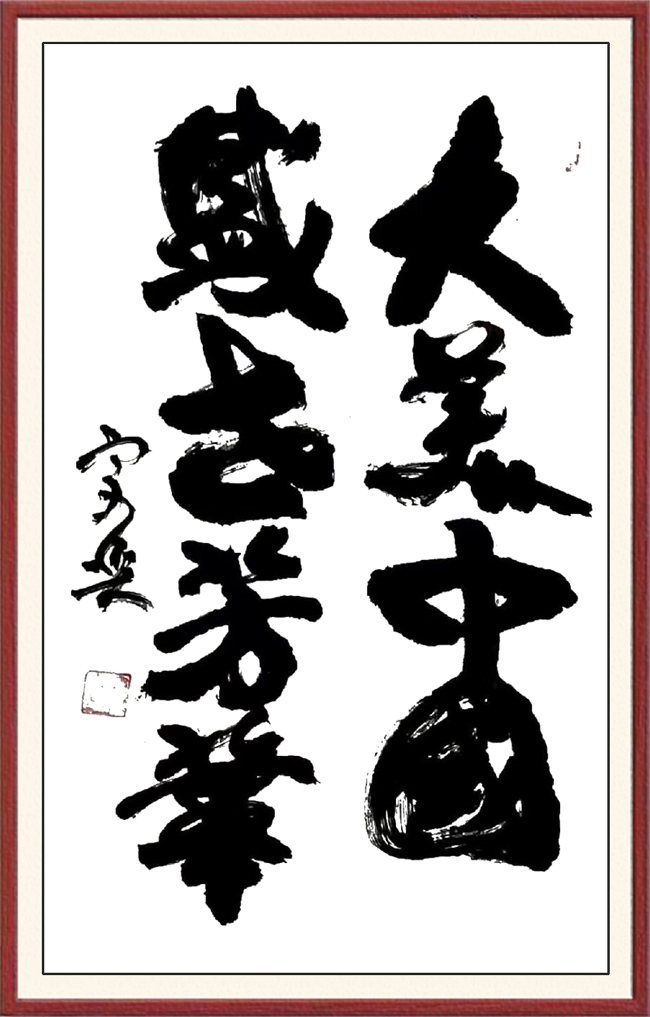 大美中國
盛世芳華